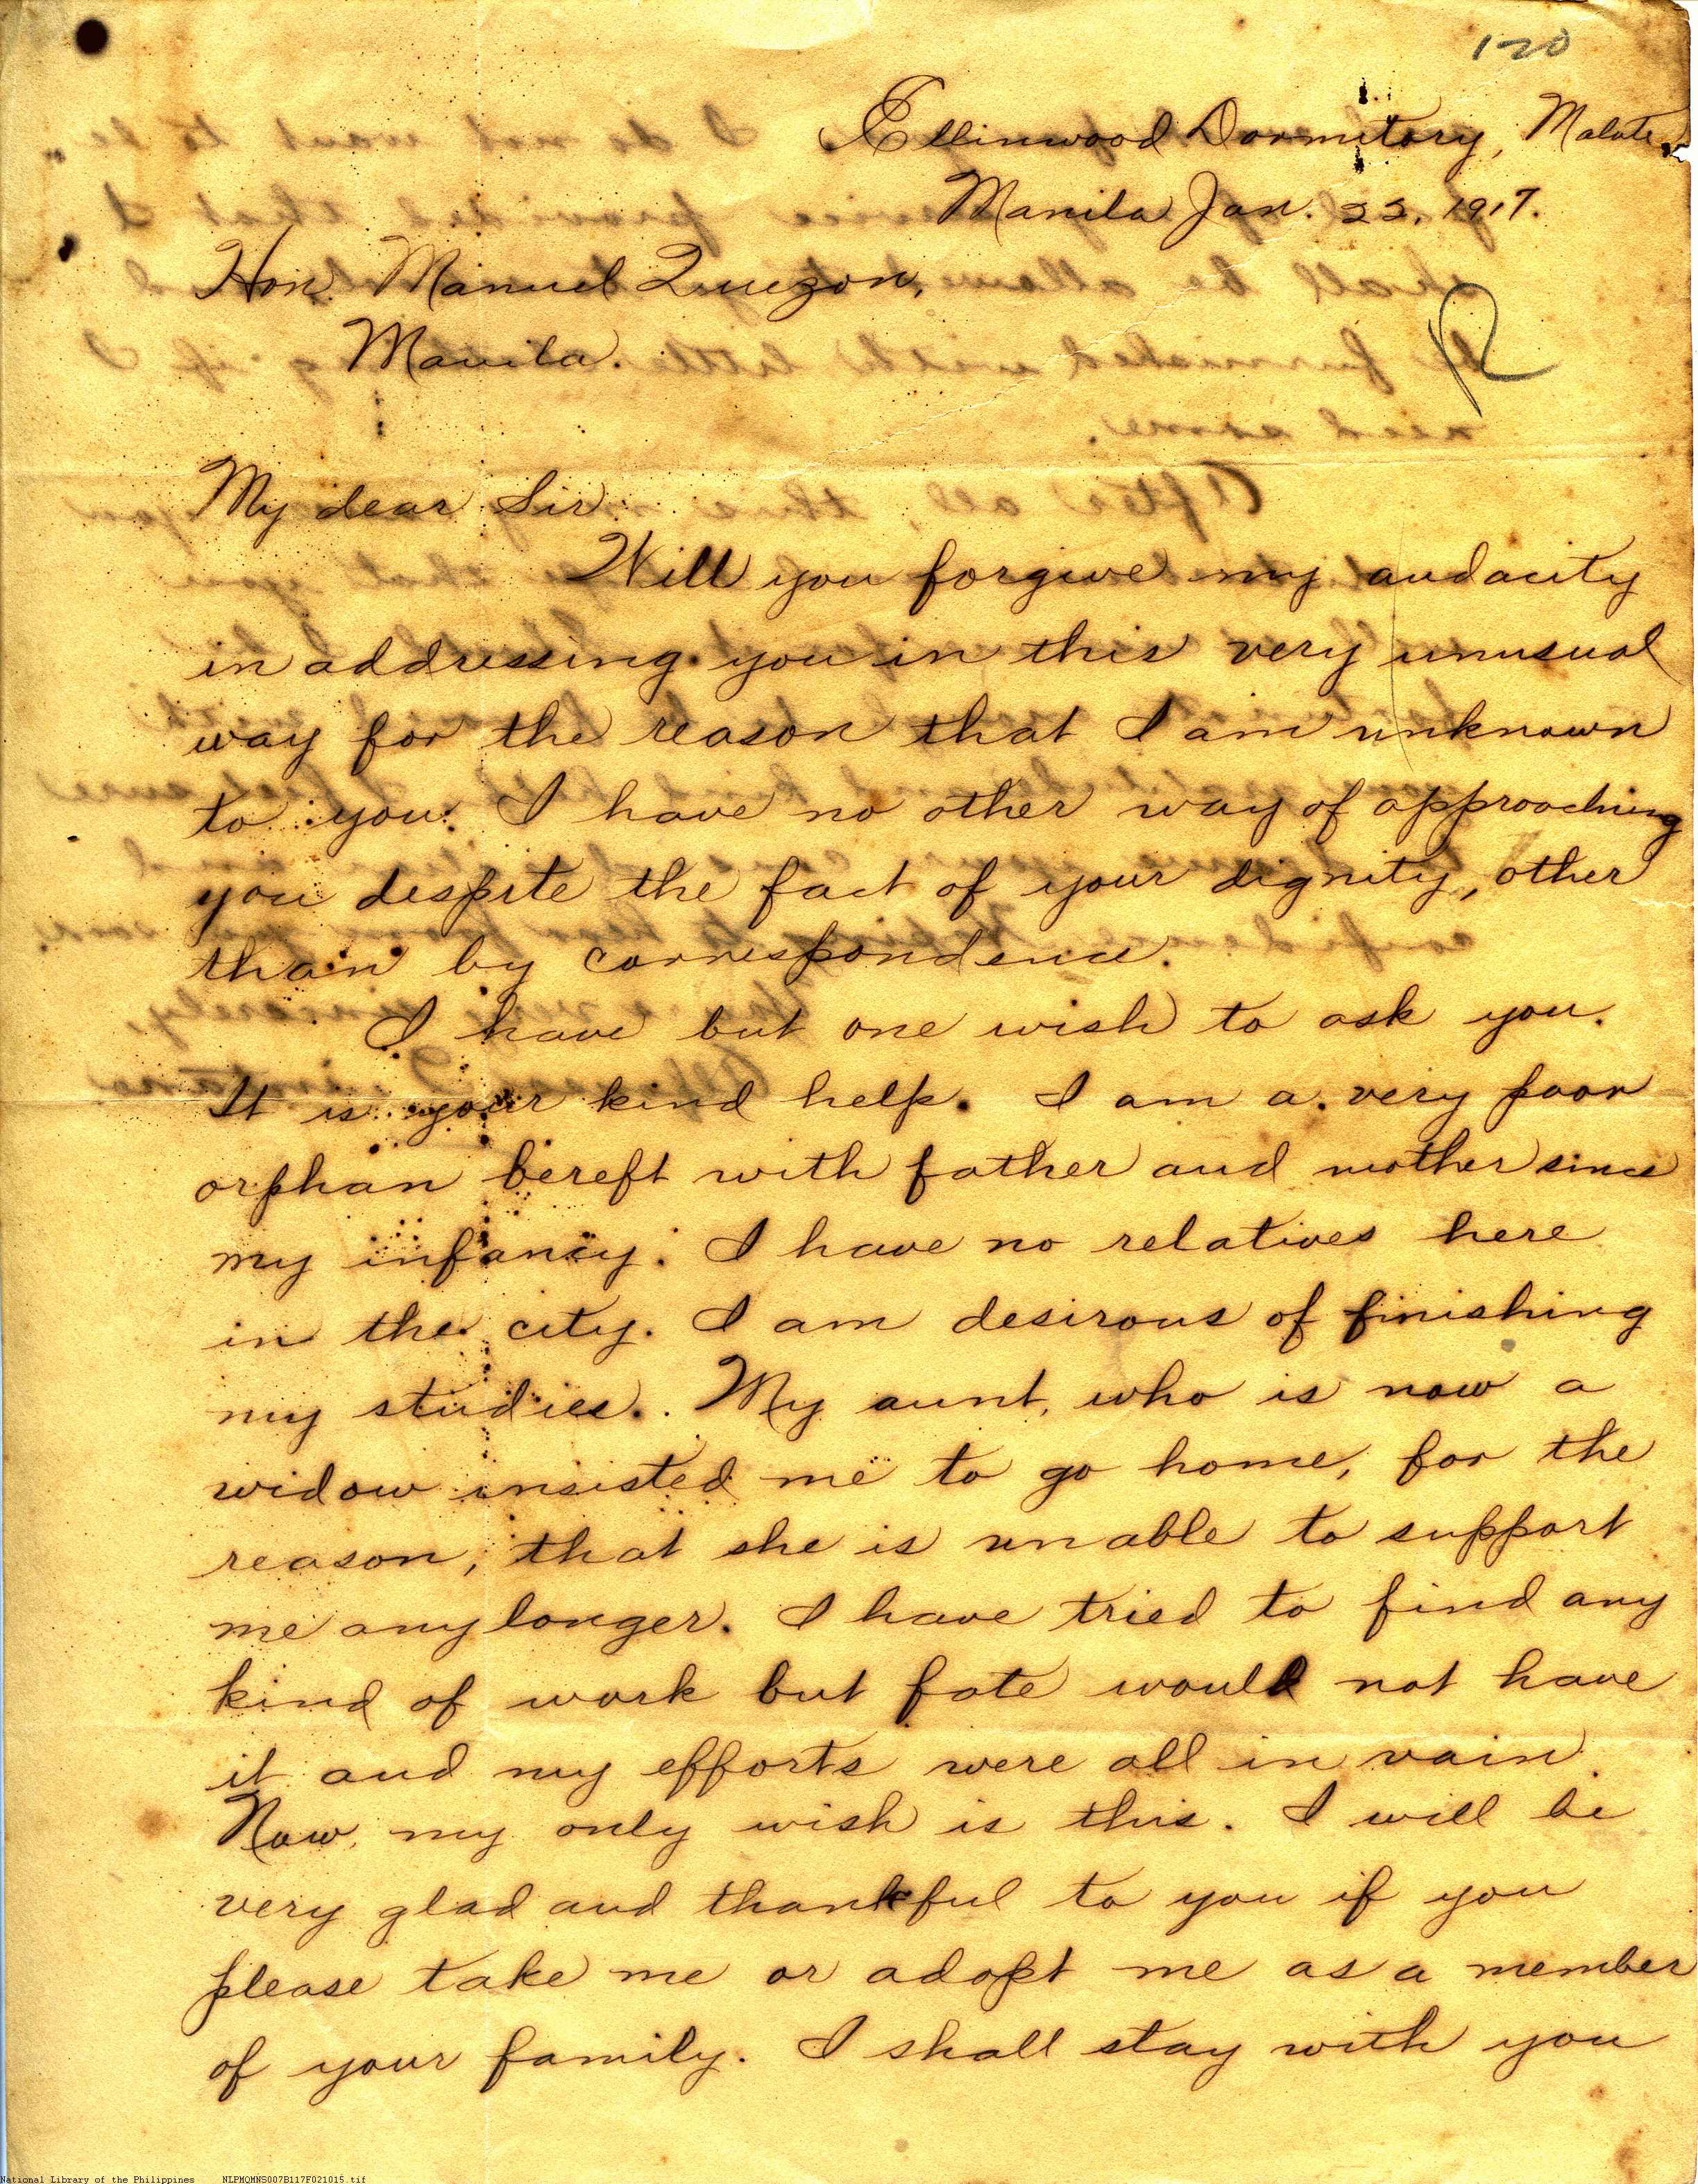 120
Ellinwood Dormitory, Malate,
Manila Jan. 22, 1917.
Hon. Manuel Quezon,
Manila.
R
My dear Sir:
Will you forgive my audacity
in addressing you in this very unusual
way for the reason that I am unknown
to you. I have no other way of approaching
you despite the fact of your dignity, other
than by correspondence.
I have but one wish to ask you.
It is your kind help. I am a very poor
orphan bereft with father and mother since
my infancy. I have no relatives here
in the city. I am desirous of finishing
my studies. My aunt, who is now a
widow insisted me to go home, for the
reason, that she is unable to support
me any longer. I have tried to find any
kind of work but fate would not have
it and my efforts were all in vain.
Now, my only wish is this. I will be
very glad and thankful to you if you
please take me or adopt me as a member
of your family. I shall stay with you
National Library of the Philippines NLPMQMNS007B117F021015.tif